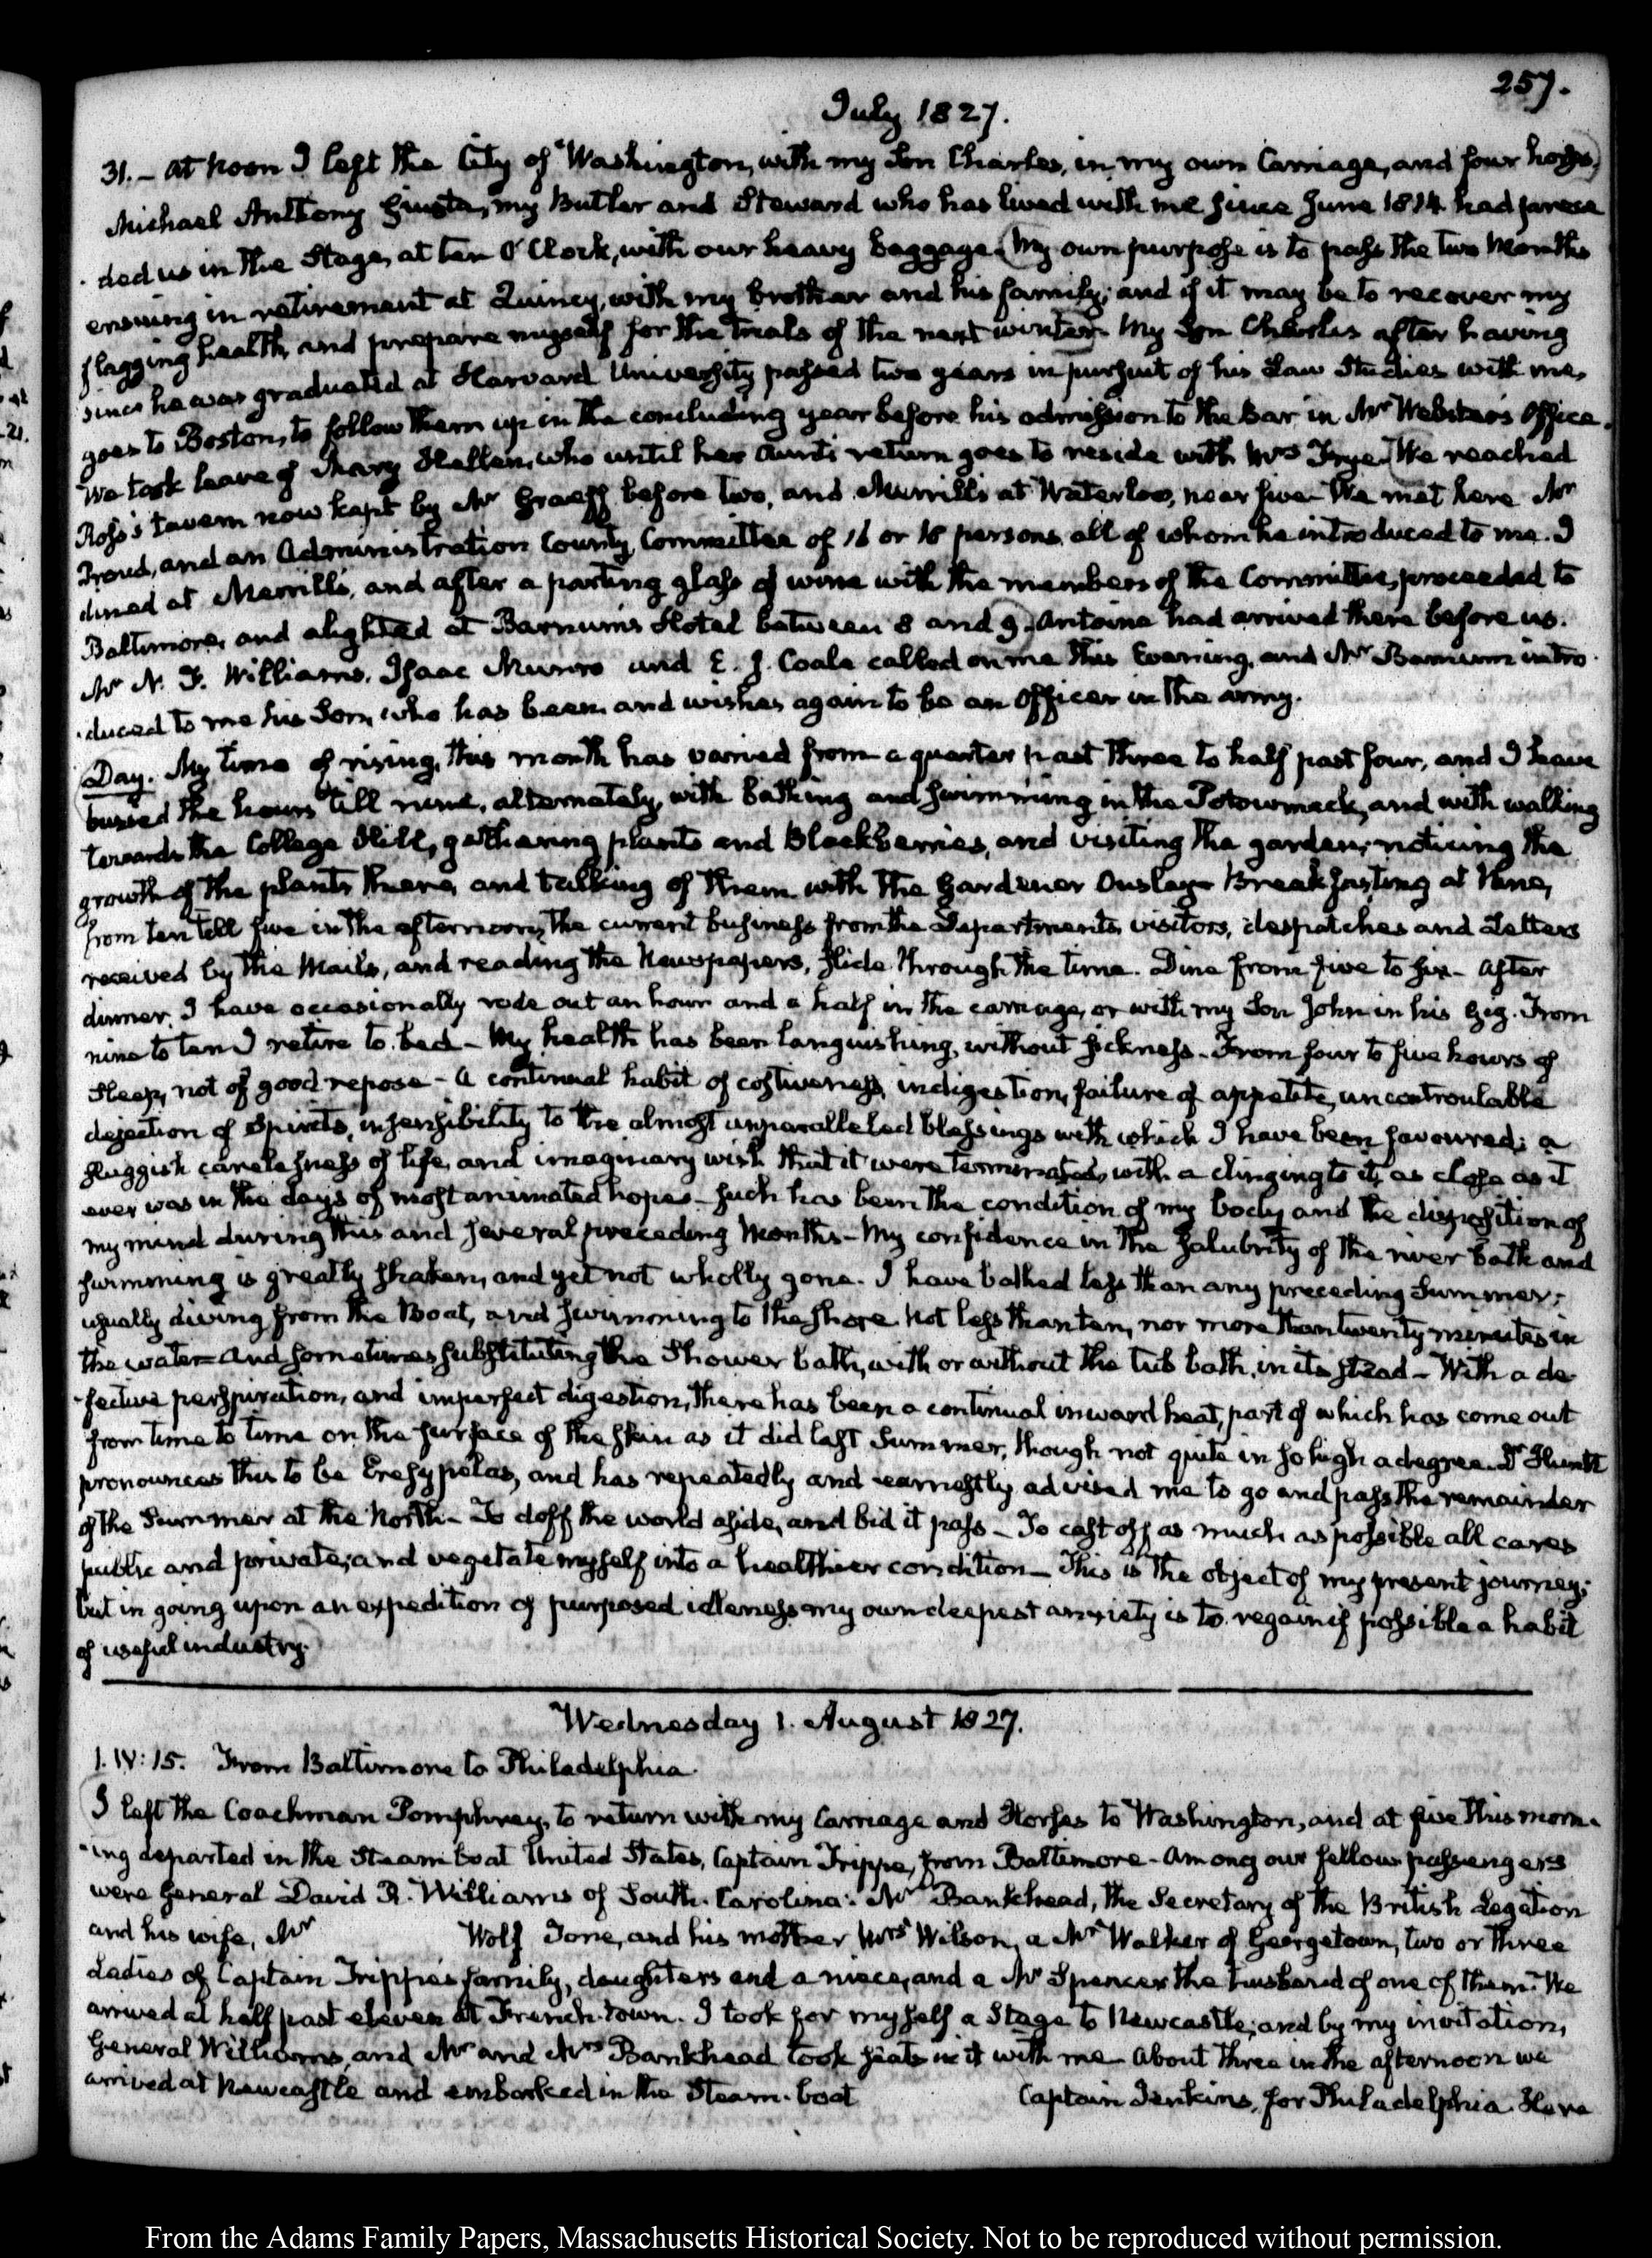 257.
July 1827.
31. – At noon I left the City of Washington, with my Son Charles, in my own Carriage, and four horses,
Michael Anthony Giusta, my Butler and Steward who has lived with me since June 1814 had prece
ded us in the Stage, at ten O'Clock, with our heavy baggage. My own purpose is to pass the two Months
ensuing in retirement at Quincy, with my brother and his family; and if it may be to recover my
flagging health, and prepare myself for the trials of the next winter. My Son Charles after having
since he was graduated at Harvard University passed two years in pursuit of his Law Studies with me,
goes to Boston, to follow them up in the concluding year before his admission to the Bar in Mr Webster's Office.
We took leave of Mary Hellen, who until her Aunt's return goes to reside with Mrs Frye. We reached
Ross's tavern now kept by Mr Graeff before two, and Merrill's at Waterloo, near five – We met here Mr
Proud, and an Administration County Committee of 16 or 18 persons all of whom he introduced to me. I
dined at Merrill's, and after a parting glass of wine with the members of the Committee, proceeded to
Baltimore, and alighted at Barnum's Hotel between 8 and 9. Antoine had arrived there before us.
Mr N. F. Williams, Isaac Munro and E. J. Coale called on me this Evening, and Mr Barnum intro
duced to me his Son, who has been and wishes again to be an Officer in the army.
Day. My time of rising, this month has varied from a quarter past three to half past four, and I have
bused the hours till nine, alternately, with bathing and swimming in the Potowmack, and with walking
towards the College Hill, gathering plants and Blackberries, and visiting the garden; noticing the
growth of the plants there, and talking of them with the Gardener Ousley – Breakfasting at Nine,
from ten till five in the afternoon, the current business from the Departments, visitors, despatches and Letters
received by the Mails, and reading the Newspapers, slide through the time. Dine from five to six – After
dinner, I have occasionally rode out an hour and a half in the carriage, or with my Son John in his Gig. From
nine to ten I retire to bed – My health has been languishing, without sickness – From four to five hours of
Sleep, not of good repose – A continual habit of costiveness, indigestion, failure of appetite, uncontroulable
dejection of Spirits, insensibility to the almost unparalleled blessings with which I have been favoured; a
sluggish carelessness of life, and imaginary wish that it were terminated, with a clinging to it, as close as it
ever was in the days of most animated hopes – Such has been the condition of my body and the disposition of
my mind during this and several preceding Months – My confidence in the Salubrity of the river bath and
swimming is greatly shaken, and yet not wholly gone. I have bathed less than any preceding Summer;
usually diving from the Boat, and swimming to the shore. Not less than ten, nor more than twenty minutes in
the water – And sometimes substituting the Shower bath, with or without the tub bath, in its stead – With a de-
fective perspiration, and imperfect digestion, there has been a continual inward heat, part of which has come out
from time to time on the surface of the skin as it did last Summer, though not quite in so high a degree. Dr Huntt
pronounces this to be Eresypelas, and has repeatedly and earnestly advised me to go and pass the remainder
of the Summer at the North – To doff the world aside, and bid it pass – To cast off as much as possible all cares
public and private, and vegetate myself into a healthier condition – This is the object of my present journey;
but in going upon an expedition of purposed idleness my own deepest anxiety is to regain if possible a habit
of useful industry.
Wednesday 1. August 1827.
1. IV: 15. From Baltimore to Philadelphia.
I left the Coachman Pomphrey, to return with my Carriage and Horses to Washington, and at five this morn-
ing departed in the Steam boat United States, Captain Trippe, from Baltimore – Among our fellow passengers
were General David R. Williams of South Carolina: Mr Bankhead, the Secretary of the British Legation
and his wife, Mr Wolf Tone, and his mother Mrs Wilson, a Mr Walker of Georgetown, two or three
Ladies of Captain Trippe's family, daughters and a niece, and a Mr Spencer the husband of one of them. We
arrived at half past eleven at French-town. I took for myself a Stage to Newcastle; and by my invitation,
General Williams, and Mr and Mrs Bankhead took seats in it with me. About three in the afternoon we
arrived at Newcastle and embarked in the Steam-boat Captain Jenkins, for Philadelphia. Here
From the Adams Family Papers, Massachusetts Historical Society. Not to be reproduced without permission.